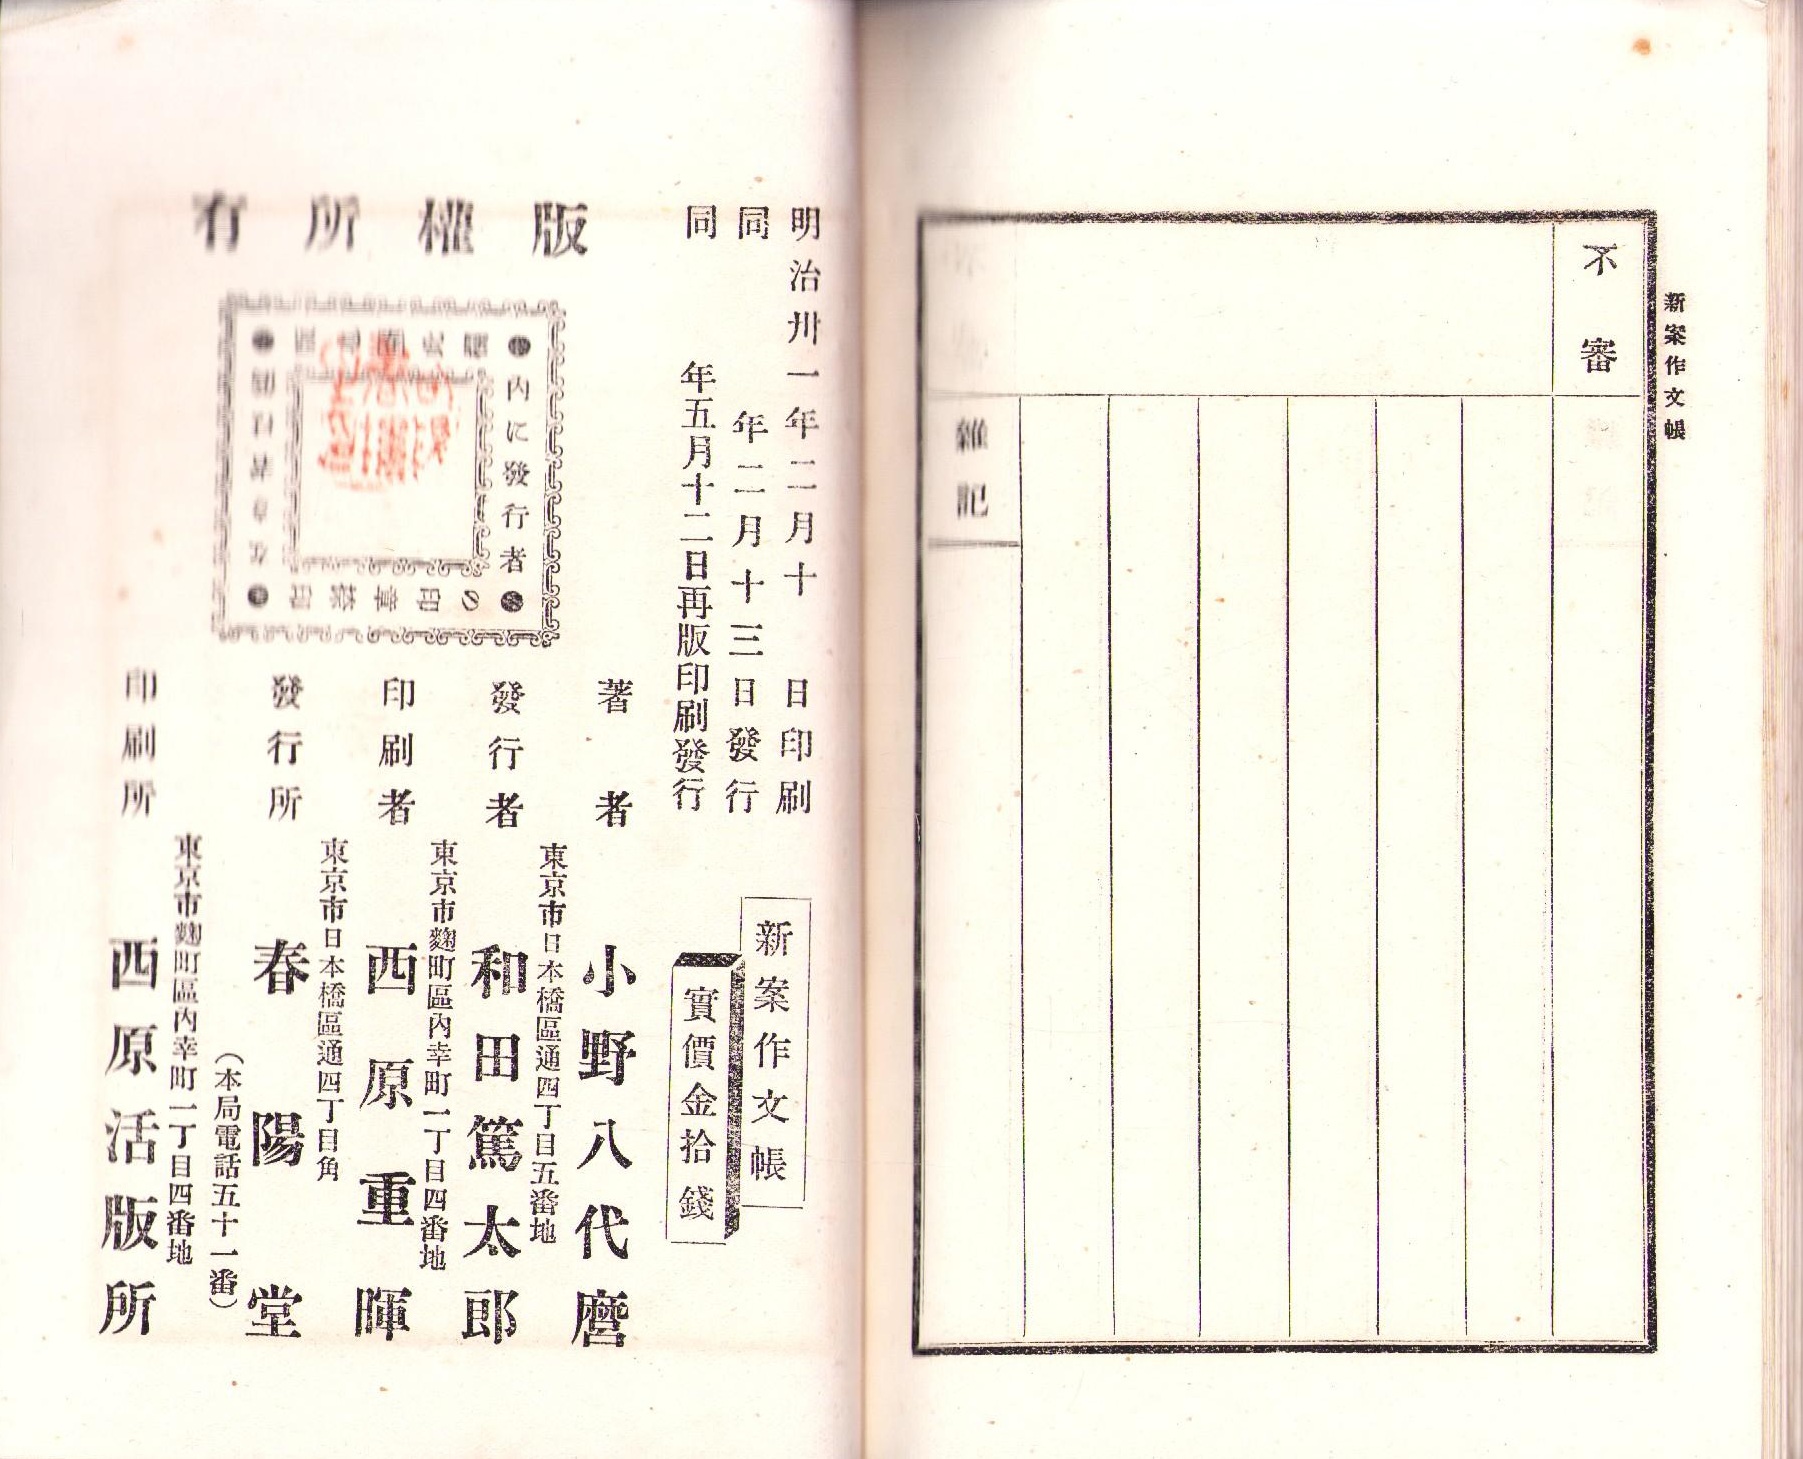 新案作文帳
不審
雑記
明治卅一年二月十日印刷
同年二月十三日發行
同年五月十二日再版印刷發行
新案作文帳
實價金拾錢
版權所有
內に發行者
の印章捺印
著者
小野八代麿
東京市日本橋區通四丁目五番地
發行者
和田篤太郎
東京市麴町區內幸町一丁目四番地
印刷者
西原重暉
東京市日本橋區通四丁目角
發行所
春陽堂
（本局電話五十一番）
東京市麴町區內幸町一丁目四番地
印刷所
西原活版所